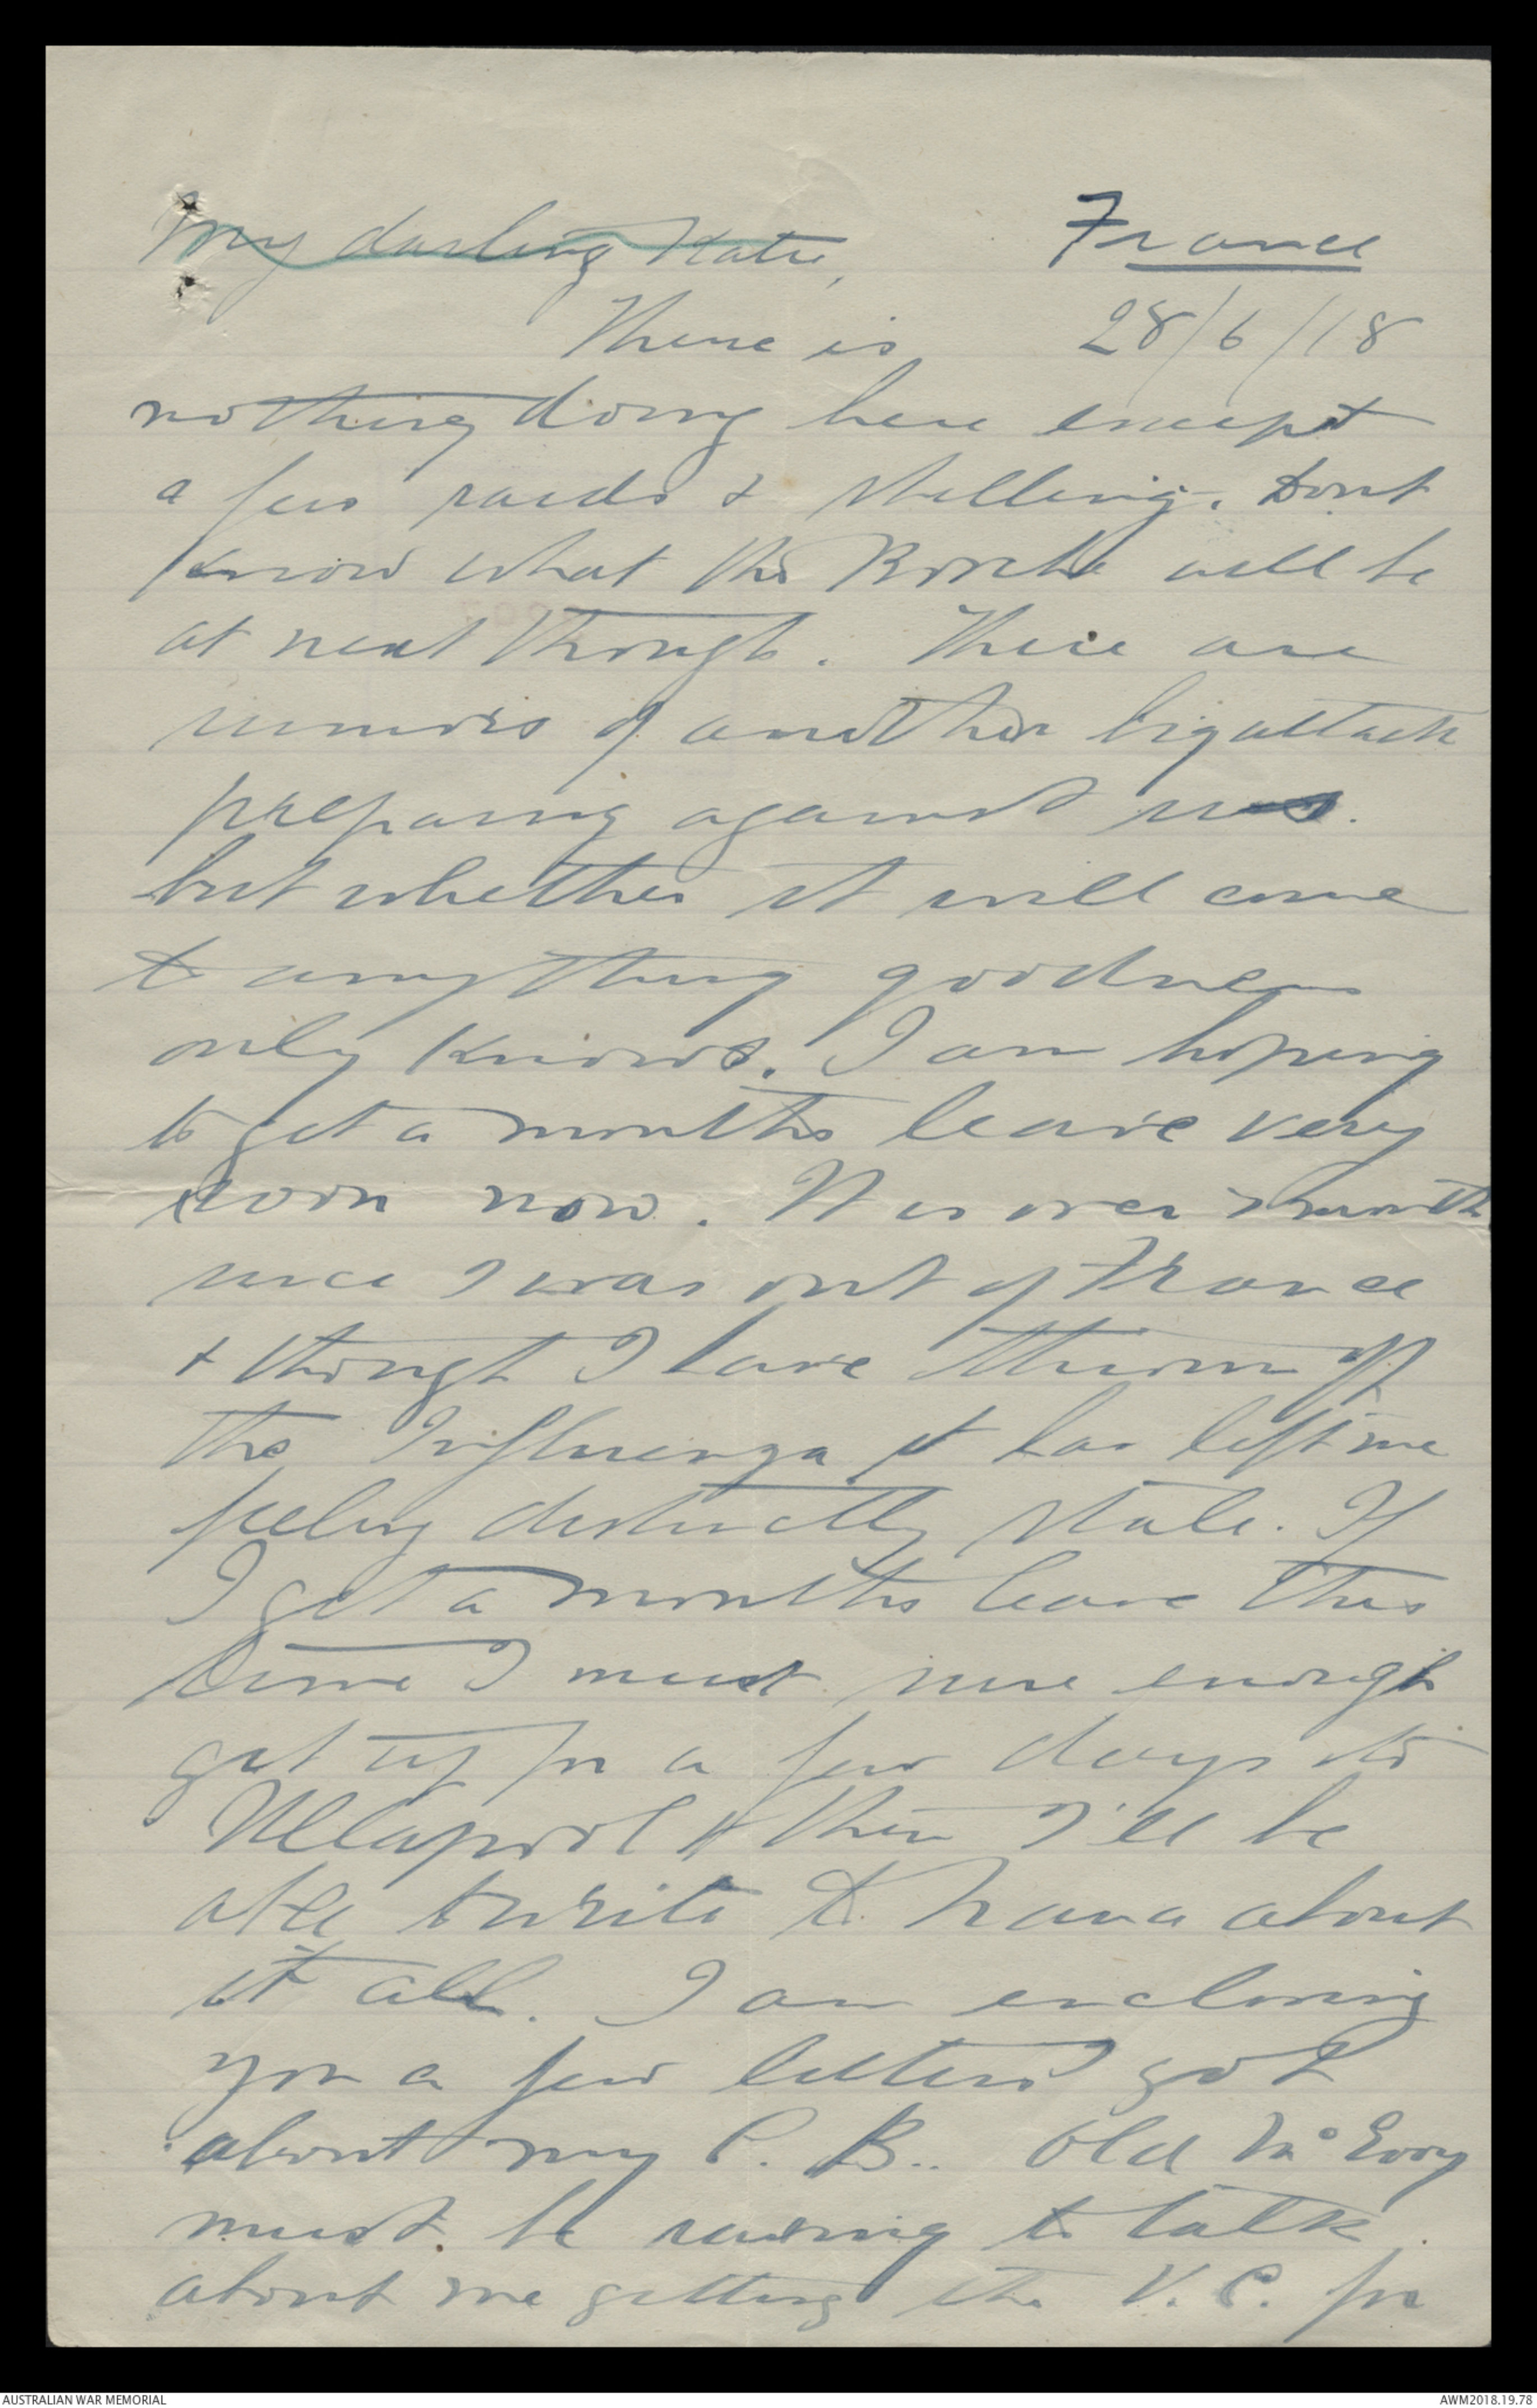 My darling Katie,
France
28/6/18
There is
nothing doing here except
a few raids & shelling. Dont
know what the Bosche will be
at next though. There are
rumors of another big attack
preparing against us.
but whether it will come
to anything goodness
only knows. I am hoping
to get a months leave very
soon now. It is over month
since I was out of France
& though I have thrown off
the Influenza it has left me
feeling distinctly stale. If
I get a months leave this
time I must sure enough
get up for a few days to
Ullapool & then I'll be
able to write to Nana about
it all. I am enclosing
you a few letters I got
about my P. B.. Old McEvoy
must be raving to talk
about me getting the V. C. for
AUSTRALIAN WAR MEMORIAL
AWM2018.19.78